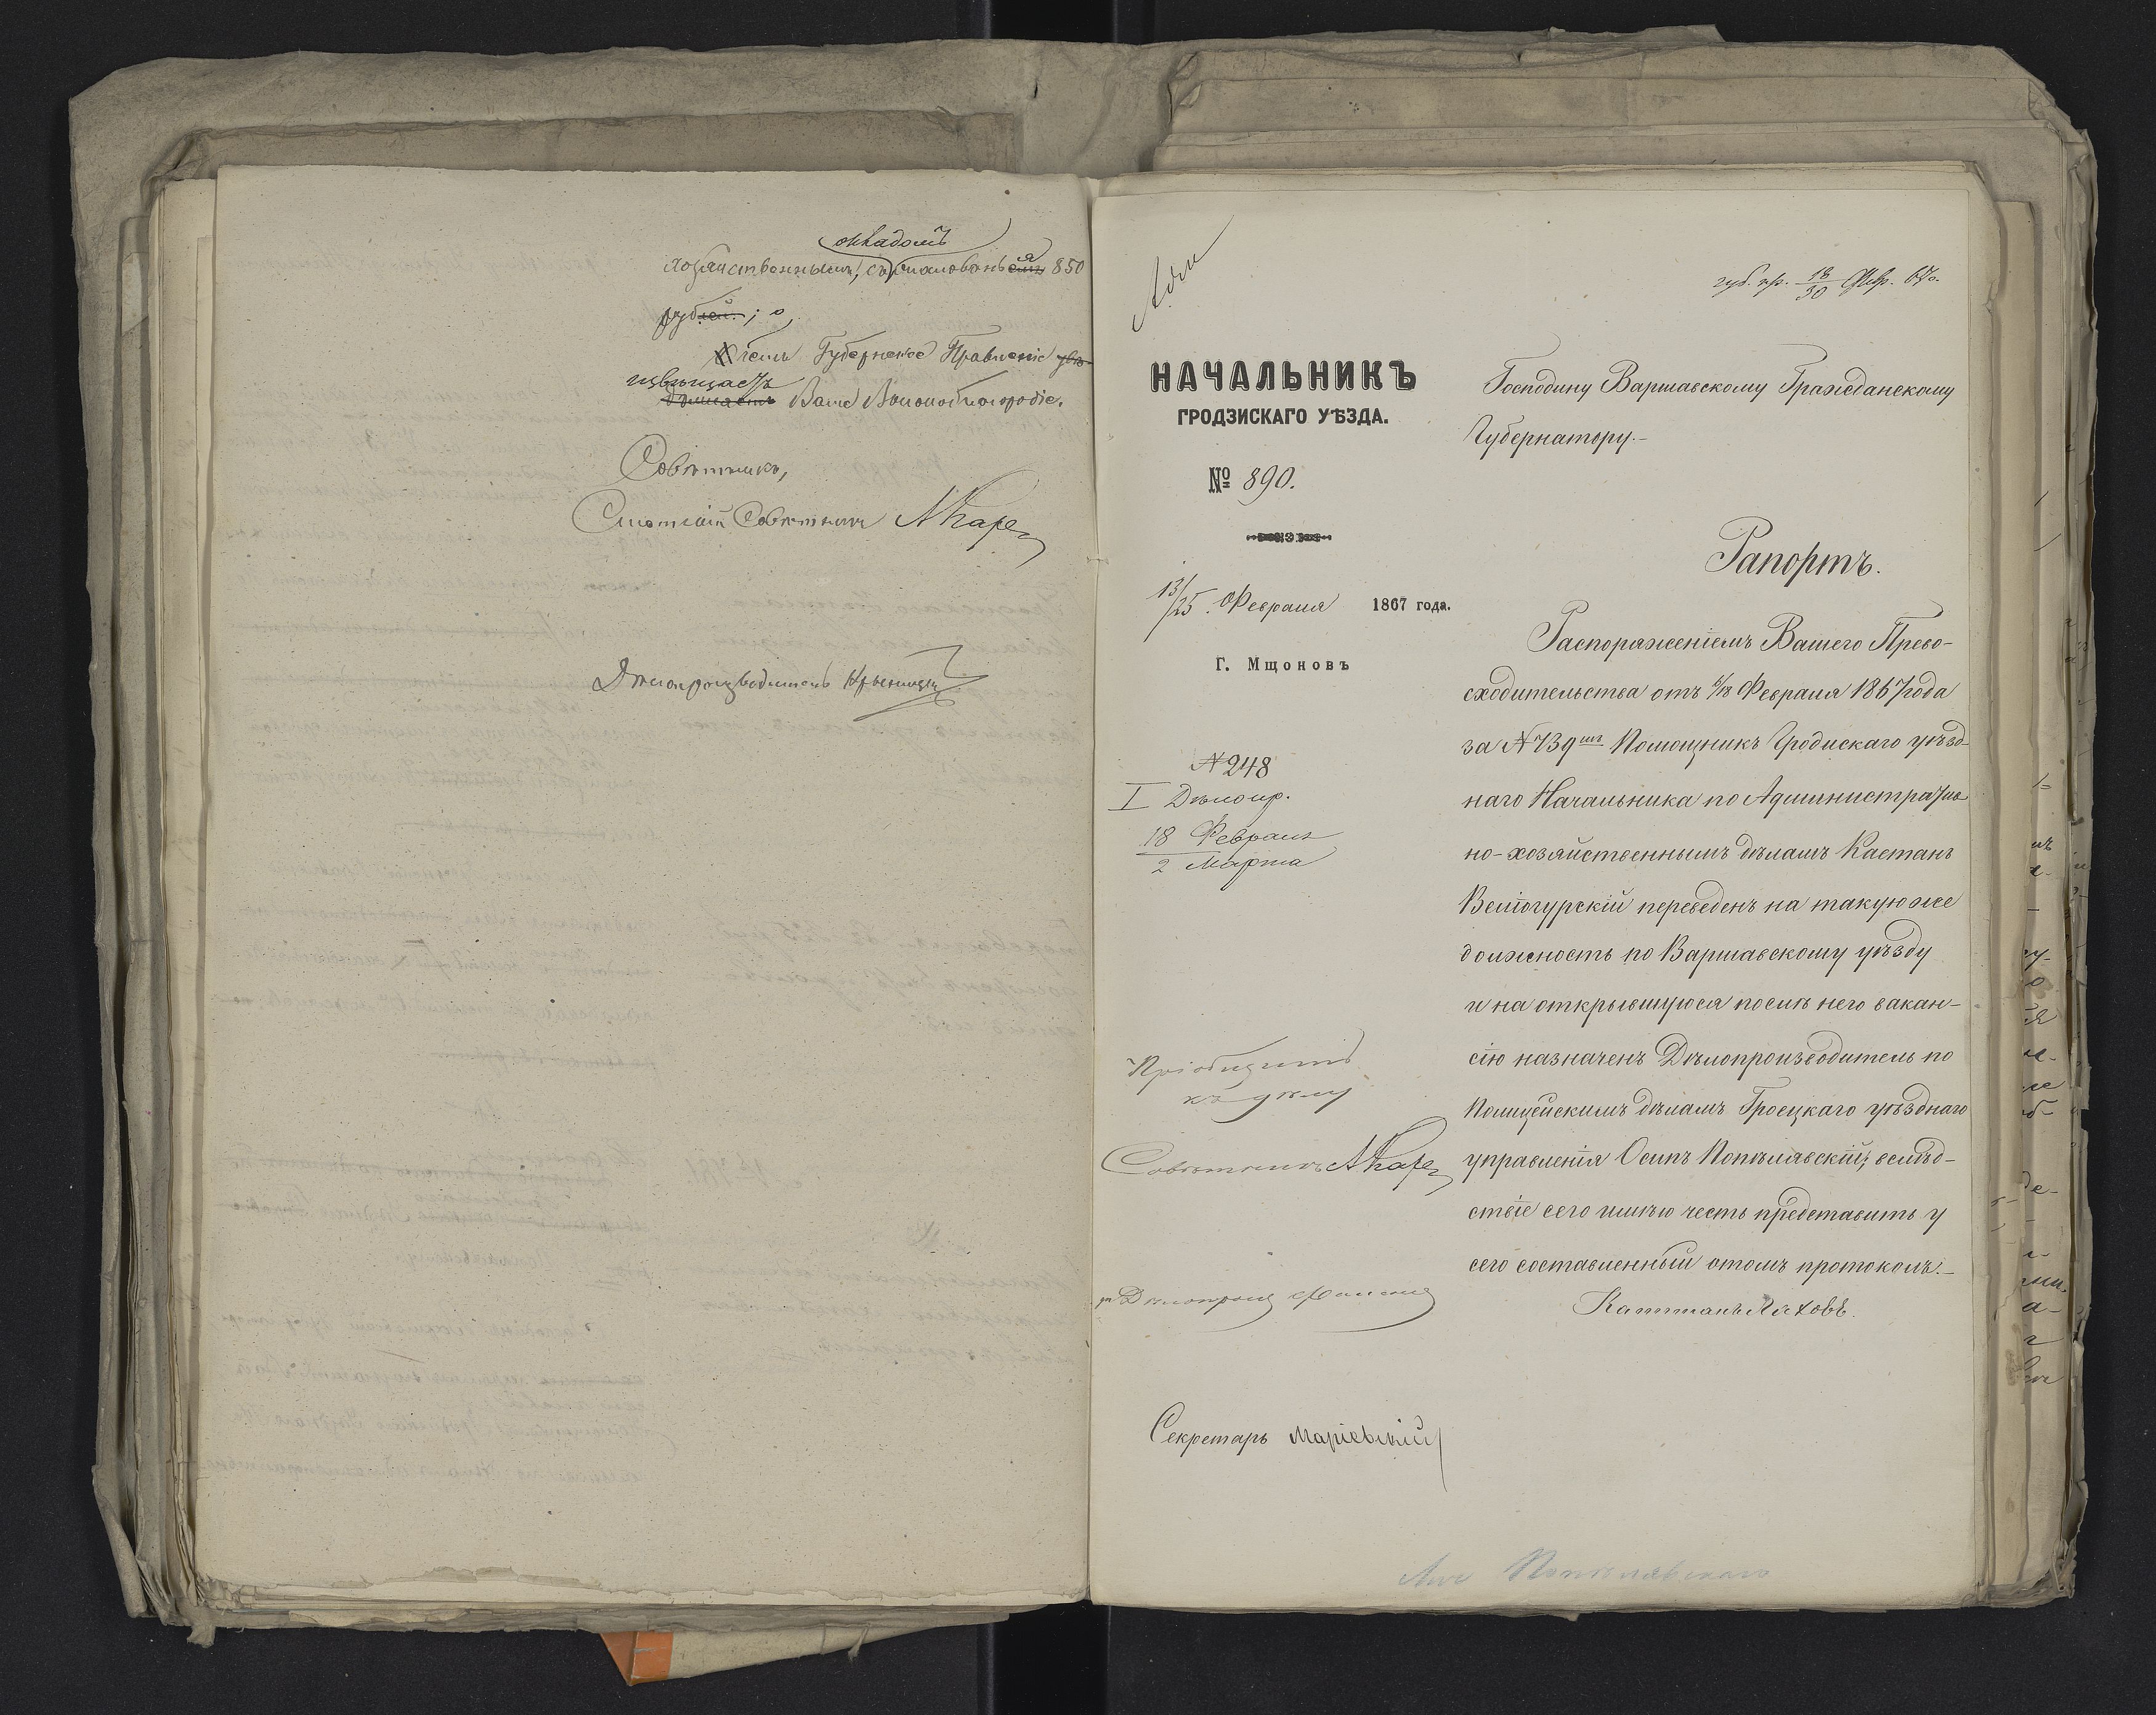 окладомъ
хозяйственнымъ, съ жалованья 850
рублей; о
чемъ Губернское Правленіе увѣ-
извѣщаетъ
домляетъ Ваше Высокоблагородіе.
Совѣтникъ,
Статскій Совѣтникъ
Дѣлопроизводитель
губ. пр. 18/30 Февр. 67 г.
НАЧАЛЬНИКЪ
ГРОДЗИСКАГО УѢЗДА.
№ 890.
13/25. Февраля 1867 года.
Г. Мщоновъ
N 248
I Дѣлопр.
18 Февраля
2 Марта
Пріобщить
къ дѣлу
Совѣтникъ
Дѣлопроиз
Секретарь Маріевскій
Господину Варшавскому Гражданскому
Губернатору.-
Рапортъ.
Распоряженіемъ Вашего Прево-
сходительства отъ 6/18 Февраля 1867 года
за N 739мъ Помощникъ Гродискаго уѣзд-
наго Начальника по Административ
но-хозяйственнымъ дѣламъ Каетанъ
Велїогурскій переведенъ на такую же
должность по Варшавскому уѣзду
и на открывшуюся послѣ него вакан-
сію назначенъ Дѣлопроизводитель по
Полицейскимъ дѣламъ Гроецкаго уѣзднаго
управленія Осипъ Попѣлявскій; вслѣд-
ствіе сего имѣю честь представить у
сего составленный о томъ протоколъ.-
Капитанъ Ляховъ.
Попѣлявскаго